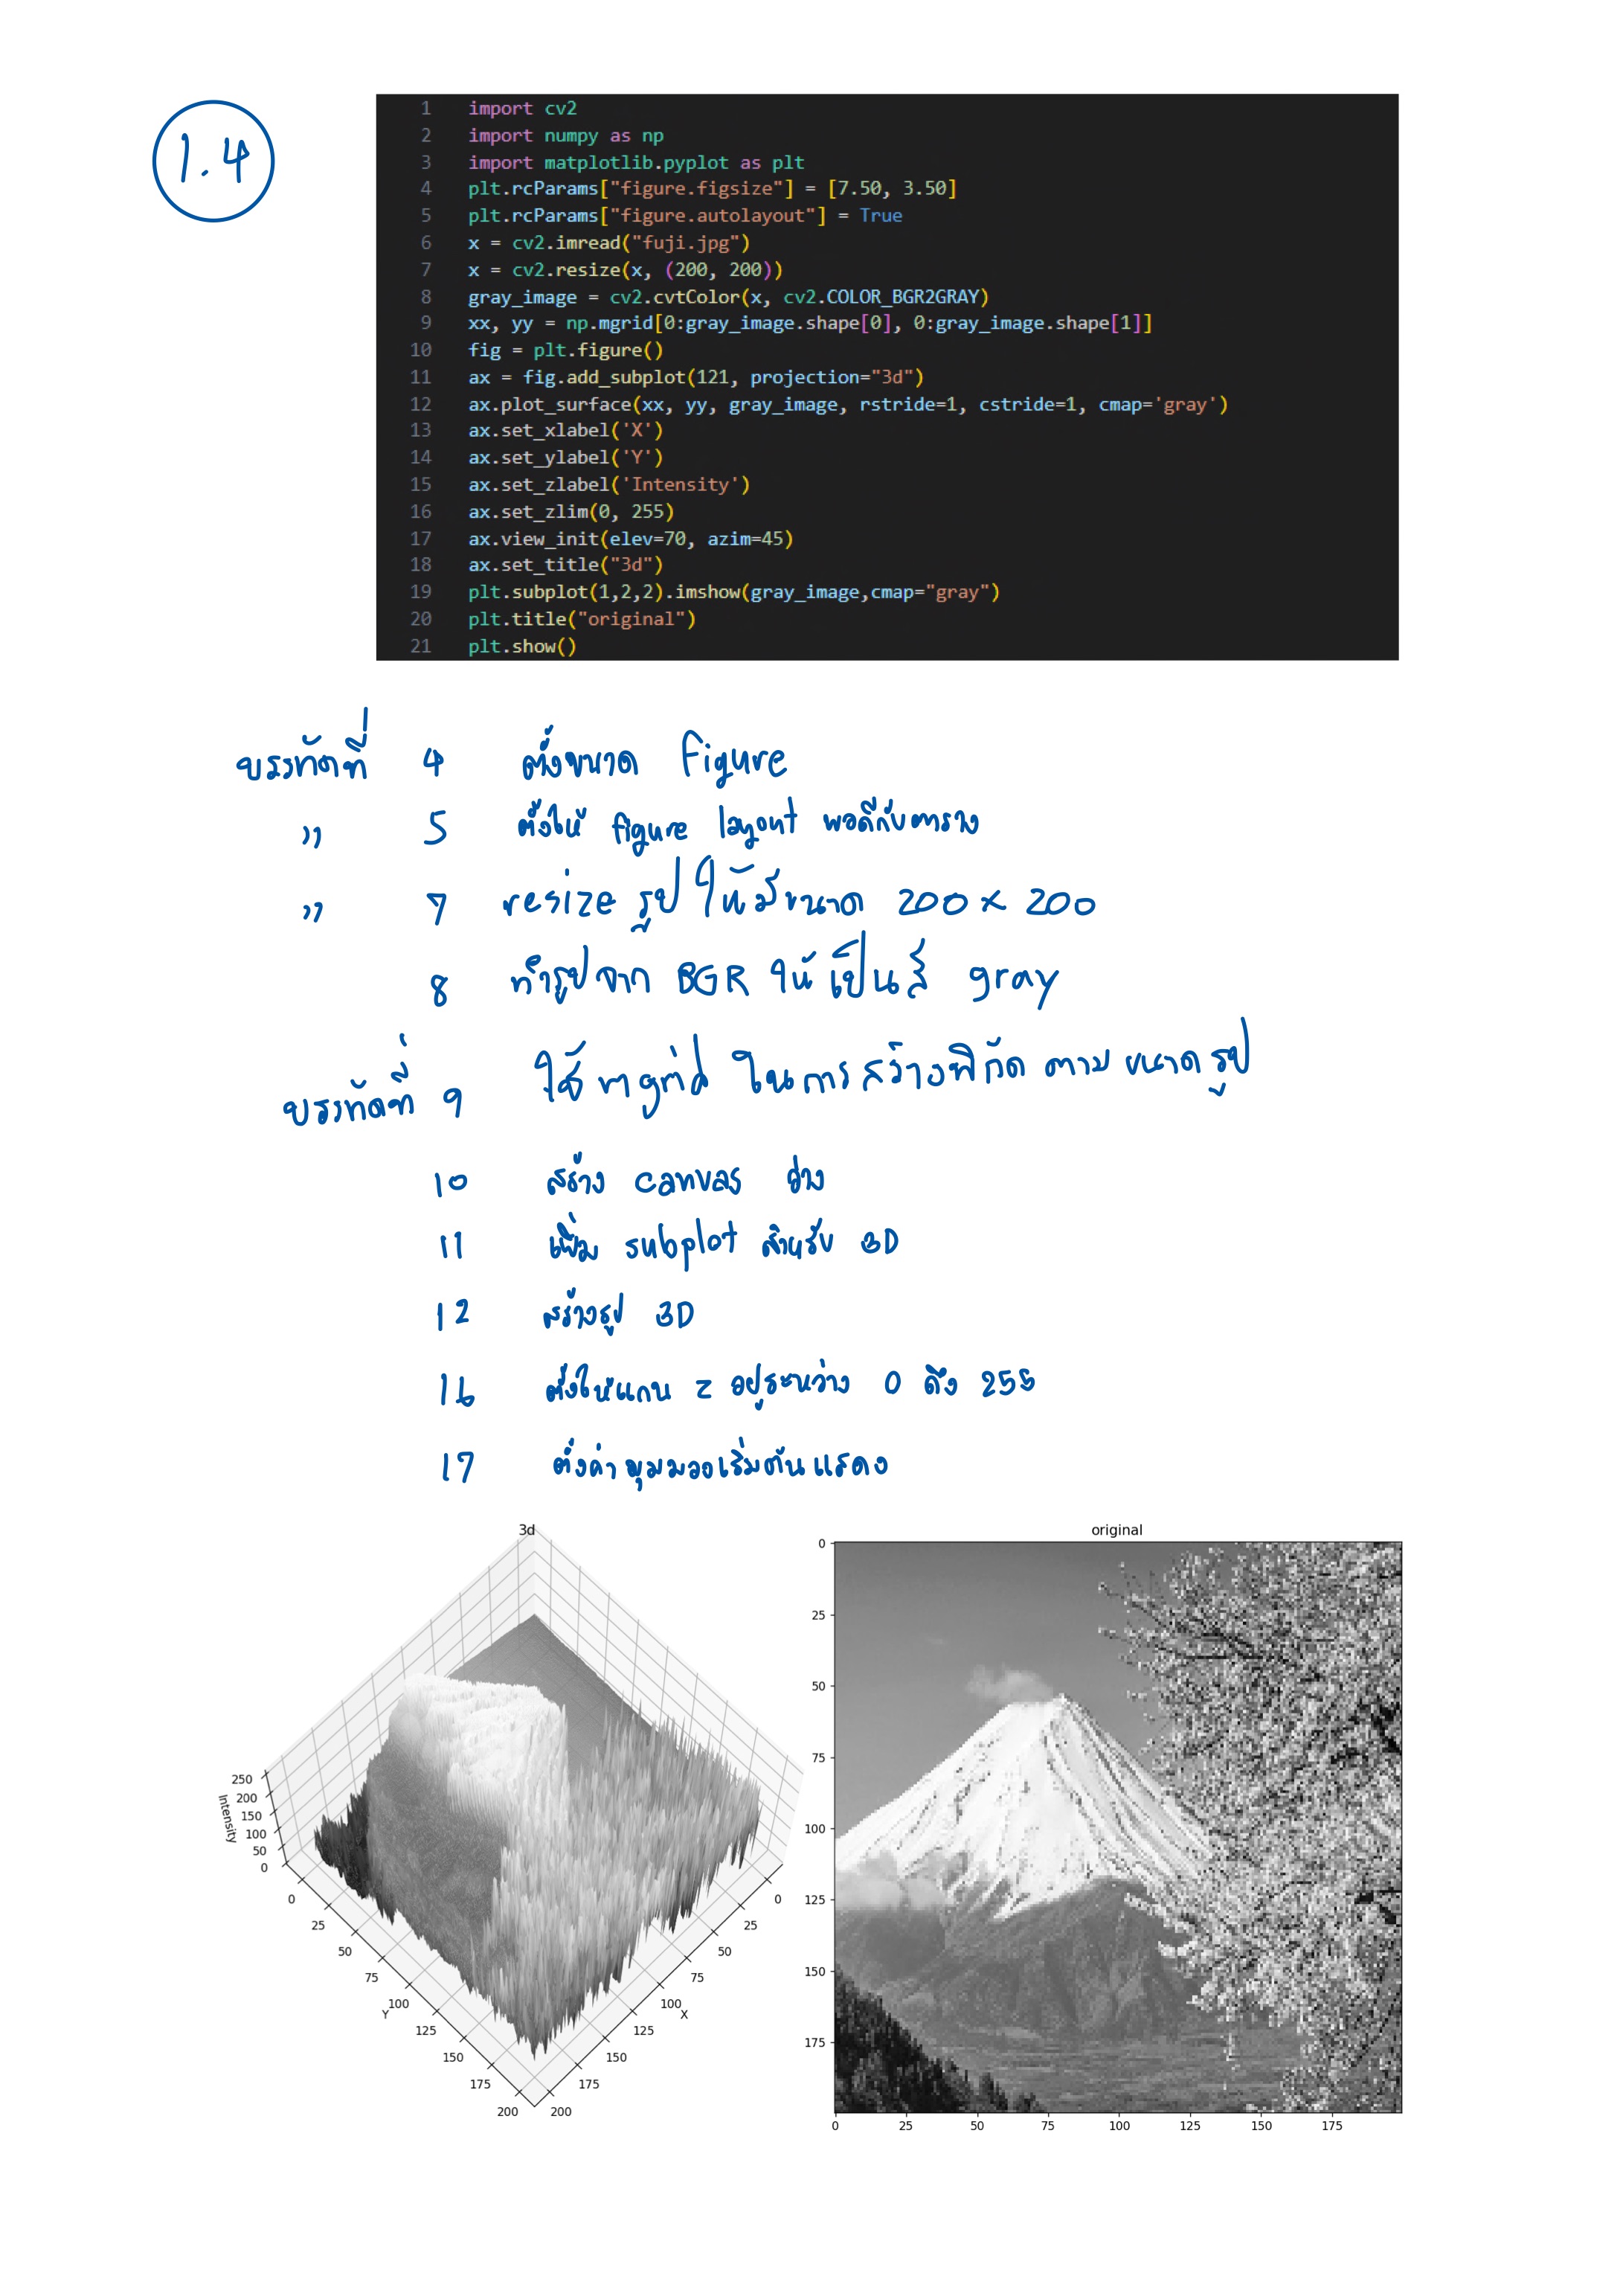 1.4
1 import cv2
2 import numpy as np
3 import matplotlib.pyplot as plt
4 plt.rcParams["figure.figsize"] = [7.50, 3.50]
5 plt.rcParams["figure.autolayout"] = True
6 x = cv2.imread("fuji.jpg")
7 x = cv2.resize(x, (200, 200))
8 gray_image = cv2.cvtColor(x, cv2.COLOR_BGR2GRAY)
9 xx, yy = np.mgrid[0:gray_image.shape[0], 0:gray_image.shape[1]]
10 fig = plt.figure()
11 ax = fig.add_subplot(121, projection="3d")
12 ax.plot_surface(xx, yy, gray_image, rstride=1, cstride=1, cmap='gray')
13 ax.set_xlabel('X')
14 ax.set_ylabel('Y')
15 ax.set_zlabel('Intensity')
16 ax.set_zlim(0, 255)
17 ax.view_init(elev=70, azim=45)
18 ax.set_title("3d")
19 plt.subplot(1,2,2).imshow(gray_image,cmap="gray")
20 plt.title("original")
21 plt.show()
บรรทัดที่ 4 ตั้งขนาด Figure
" 5 ตั้งให้ figure layout พอดีกับตาราง
" 7 resize รูป ให้มีขนาด 200 x 200
8 ทำรูปจาก BGR ให้เป็นสี gray
บรรทัดที่ 9 ใช้ mgrid ในการสร้างพิกัด ตาม ขนาดรูป
10 สร้าง canvas ว่าง
11 เพิ่ม subplot สำหรับ 3D
12 สร้างรูป 3D
16 ตั้งให้แกน z อยู่ระหว่าง 0 ถึง 255
17 ตั้งค่ามุมมองเริ่มต้นแสดง
3d
250
200
150
100
50
0
Intensity
0
25
50
75
100
125
150
175
200
Y
0
25
50
75
100
125
150
175
200
X
original
0
25
50
75
100
125
150
175
0 25 50 75 100 125 150 175